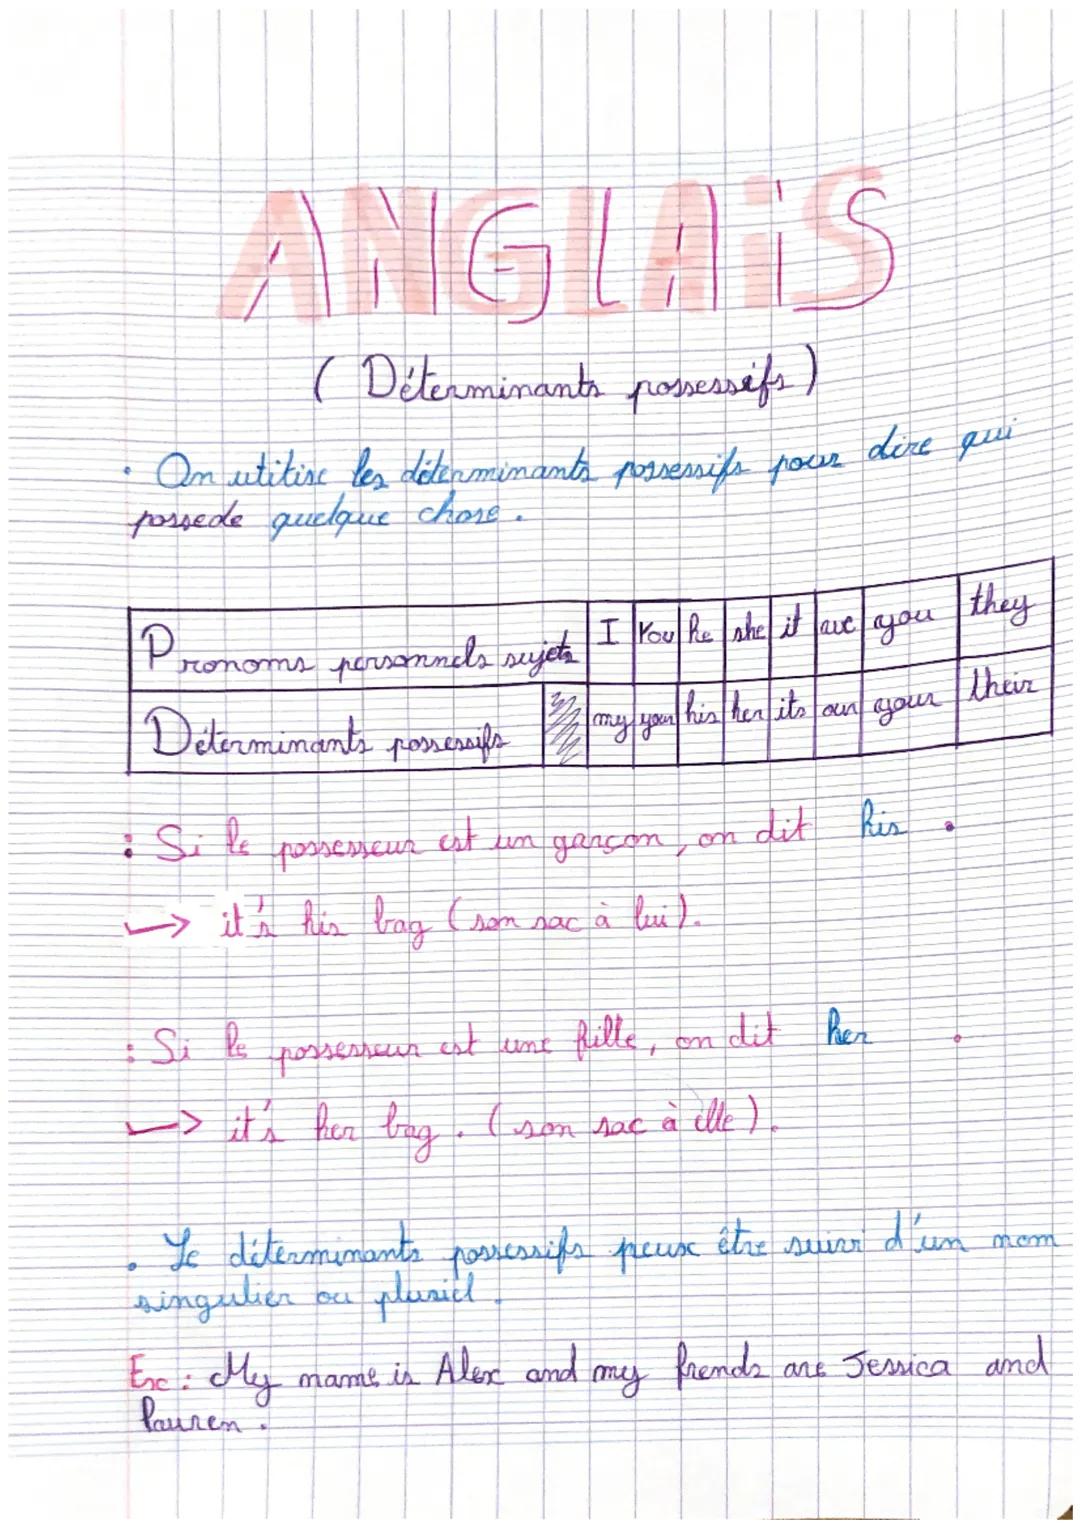 ANGLAiS
(Déterminants possessifs)
• On utitise les déterminants possessifs pour dire qui
possede quelque chose.
Pronoms personnels sujets I You he she it we you they
Déterminants possessifs my your his her its our your their
: Si le possesseur est un garçon, on dit his .
→ it's his bag (son sac à lui).
: Si le possesseur est une fille, on dit her .
→ it's her bag. (son sac à elle).
• Le déterminants possessifs peux être suivi d'un nom
singulier ou pluriel.
Ex : My name is Alex and my frends are Jessica and
lauren.